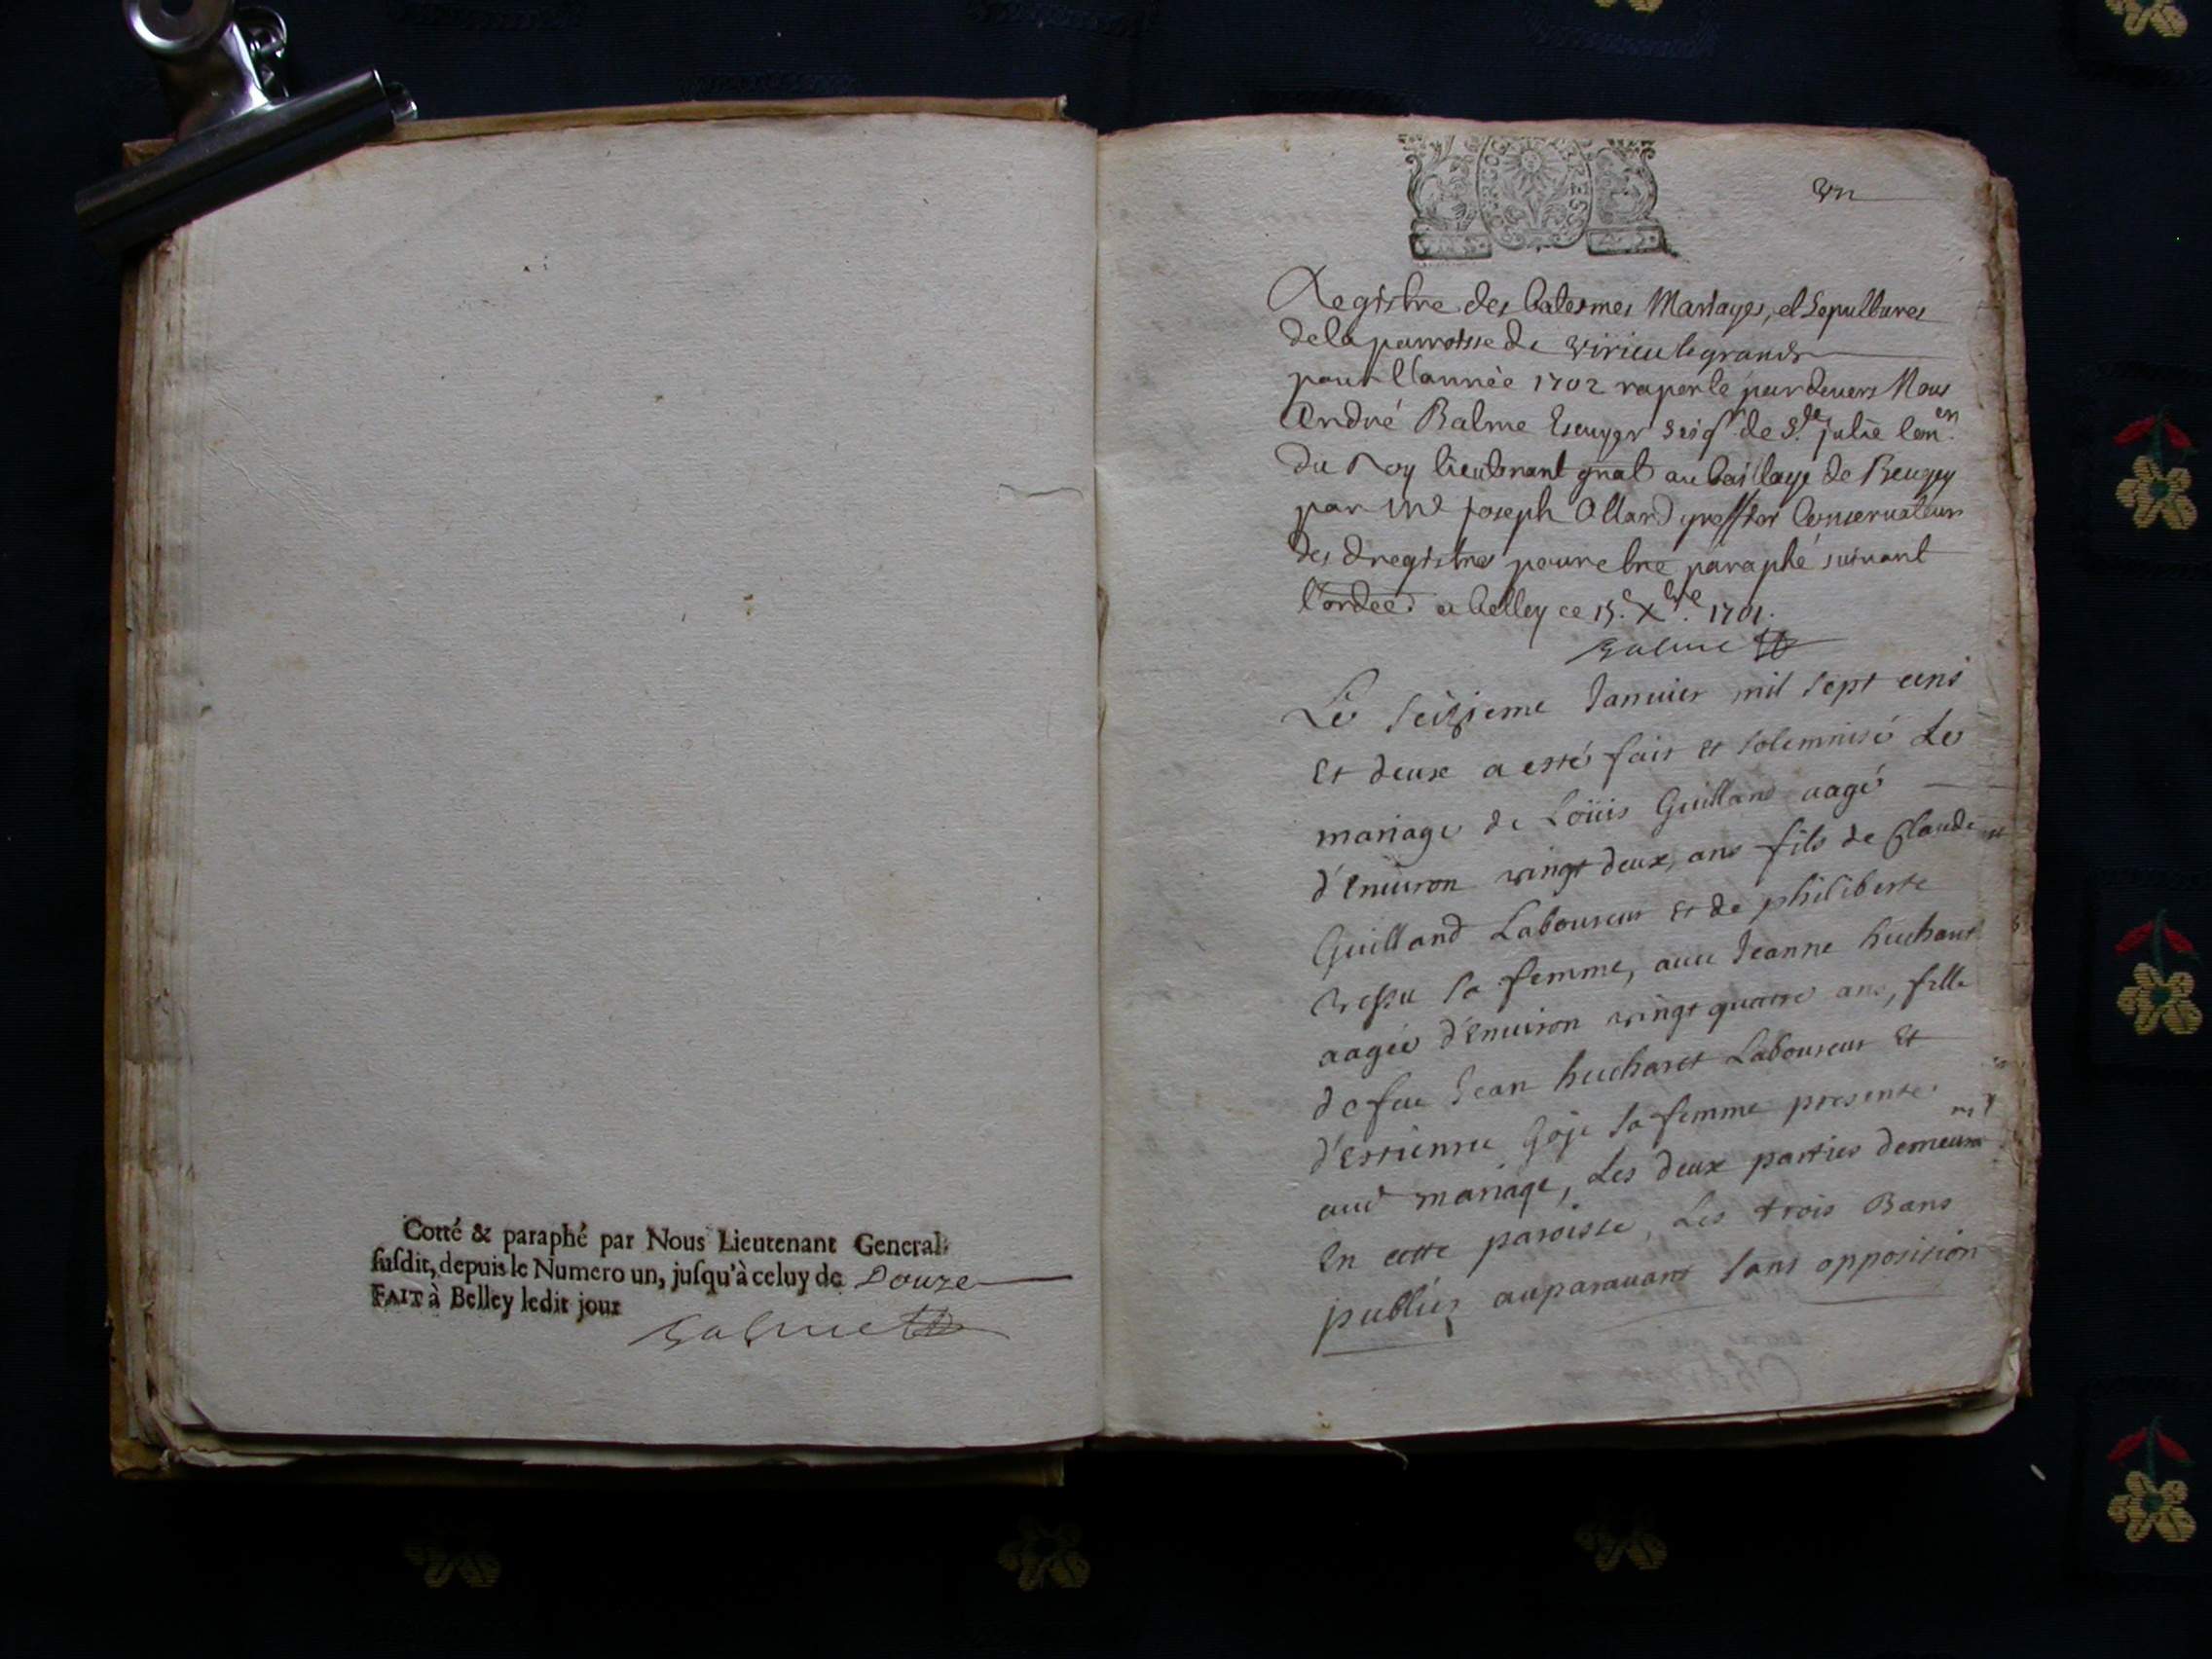 Cotté & paraphé par Nous Lieutenant General
suſdit, depuis le Numero un, juſqu'à celuy de Douze
FAIT à Belley ledit jour
Balme
un
Registre des batesmes Mariages, et Sepultures
de la parroisse de virieu le grand
pour l'année 1702 raporté pardevers Nous
André Balme Escuyer seigr de St. julie Con.er
du Roy lieutenant gnal au bailliage de Beugey
par Me Joseph Allard greffier Conservateur
des dregistres pour etre paraphé suivant
l'ordce. a belley ce 15.e Xbre. 1701.
Balme
Le seizieme Januier mil sept cens
Et deux a esté fait et solemnisé Le
mariage de Loüis Guilland aagé
d'Enuiron vingt deux ans fils de Claude
Guilland Laboureur et de philiberte
sa femme, auec Jeanne huchart
aagée d'Enuiron vingt quatre ans, fille
de feu Jean huchart Laboureur Et
d'Estienne Goje sa femme presente
aud mariage, Les deux parties demeurant
En cette paroisse, Les trois Bans
publiés auparauant sans opposition